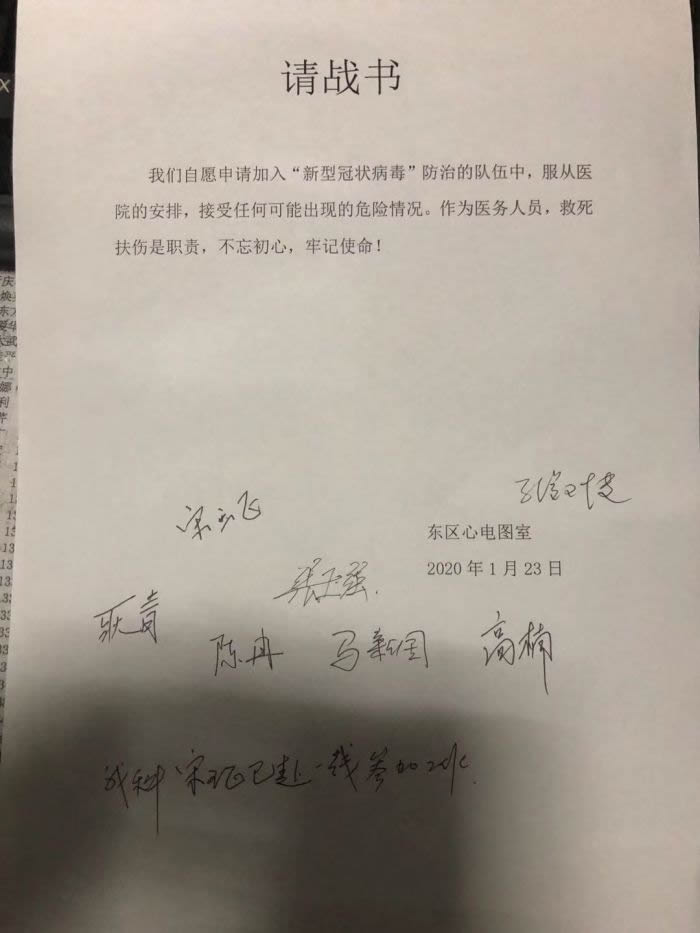 请战书
我们自愿申请加入“新型冠状病毒”防治的队伍中，服从医
院的安排，接受任何可能出现的危险情况。作为医务人员，救死
扶伤是职责，不忘初心，牢记使命！
东区心电图室
2020 年 1 月 23 日
张玉强
耿青
陈冉
高楠
我科宋 已赴一线参加